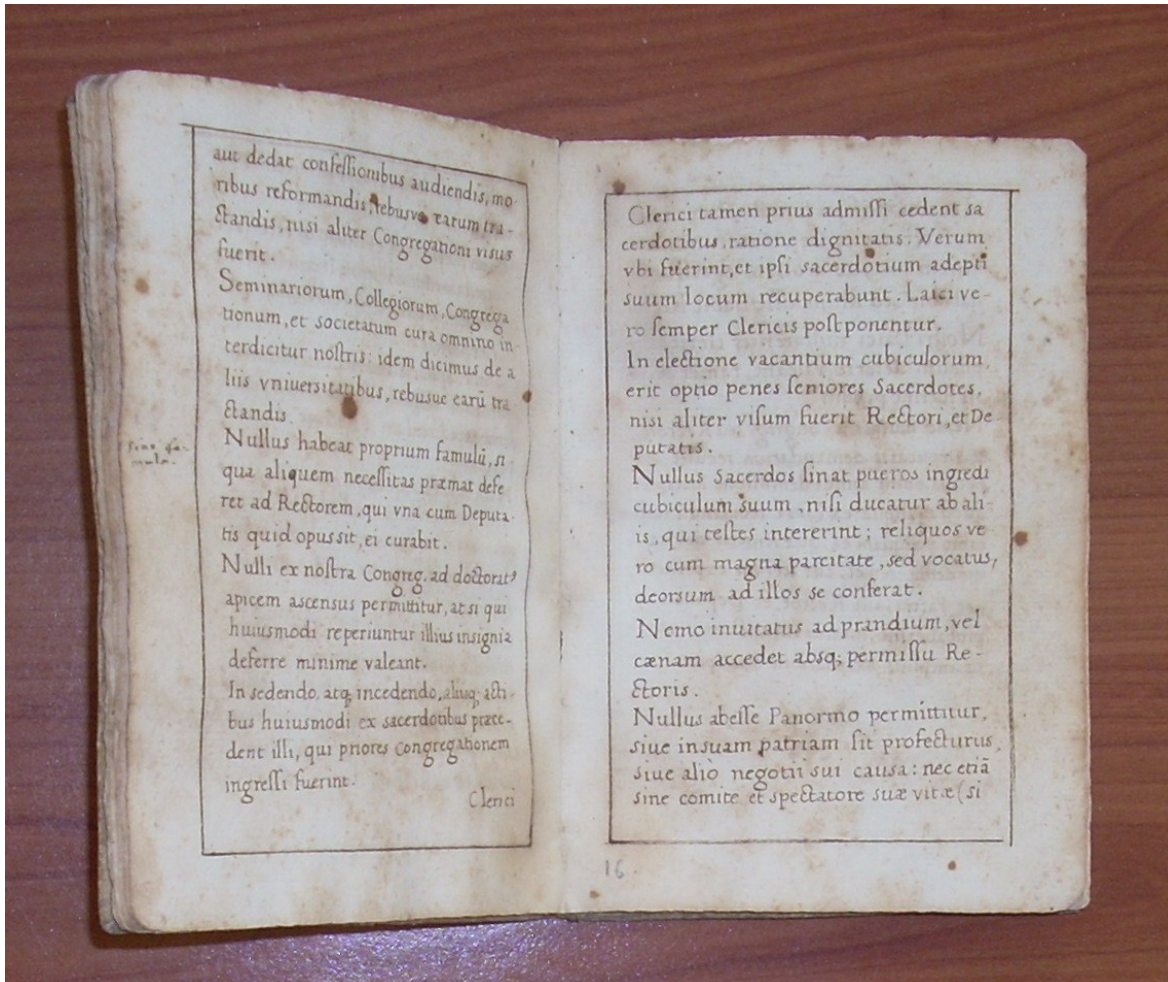 aut dedat confeſſionibus audiendis, mo-
ribus reformandis, rebusve earum tra-
ctandis, nisi aliter Congregationi visus
fuerit.
Seminariorum, Collegiorum, Congrega
tionum, et societatum cura omnino in-
terdicitur noſtris: idem dicimus de a
liis vniversitatibus, rebusue earū tra
ctandis
Nullus habeat proprium famulū, si
qua aliquem neceſſitas præmat defe
ret ad Rectorem, qui vna cum Deputa-
tis quid opus sit, ei curabit.
Nulli ex noſtra Congreg. ad doctorat⁹
apicem ascensus permittitur, at si qui
huiusmodi reperiuntur illius insignia
deferre minime valeant.
In sedendo, atq; incedendo, aliisq; acti-
bus huiusmodi ex sacerdotibus præce-
dent illi, qui priores Congregationem
ingreſſi fuerint.
Clerici
sine fa-
mulo.
Clerici tamen prius admiſſi cedent sa
cerdotibus, ratione dignitatis. Verum
vbi fuerint, et ipſi sacerdotium adepti
suum locum recuperabunt. Laici ve-
ro ſemper Clericis poſtponentur.
In electione vacantium cubiculorum,
erit optio penes ſeniores Sacerdotes,
nisi aliter viſum fuerit Rectori, et De
putatis.
Nullus Sacerdos ſinat pueros ingredi
cubiculum suum, niſi ducatur ab ali-
is, qui teſtes intererint; reliquos ve-
ro cum magna parcitate, sed vocatus,
deorsum ad illos se conferat.
Nemo inuitatus ad prandium, vel
cænam accedet absq; permiſſu Re-
ctoris.
Nullus abeſſe Panormo permittitur,
siue in suam patriam ſit profecturus,
siue aliò negotii sui causa: nec etiā
sine comite et spectatore suæ vitæ (si
16